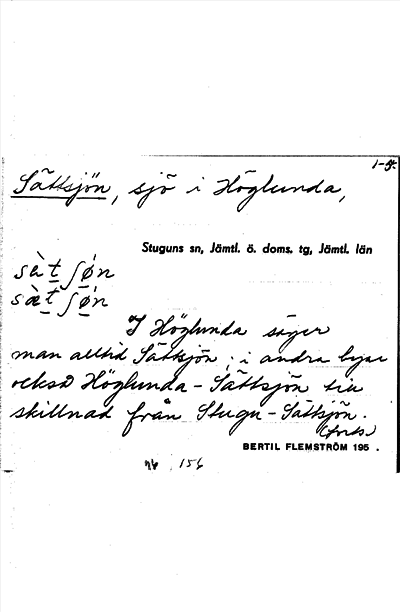 1-5.
Sättsjön, sjö i Höglunda,
Stuguns sn, Jämtl. ö. doms. tg, Jämtl. län
sèt ʃø̀n
sæ̀t ʃø̀n
I Höglunda säger
man alltid Sättsjön; i andra byar
också Höglunda-Sättsjön till
skillnad från Stugu-Sättsjön.
(forts.)
BERTIL FLEMSTRÖM 195 .
156